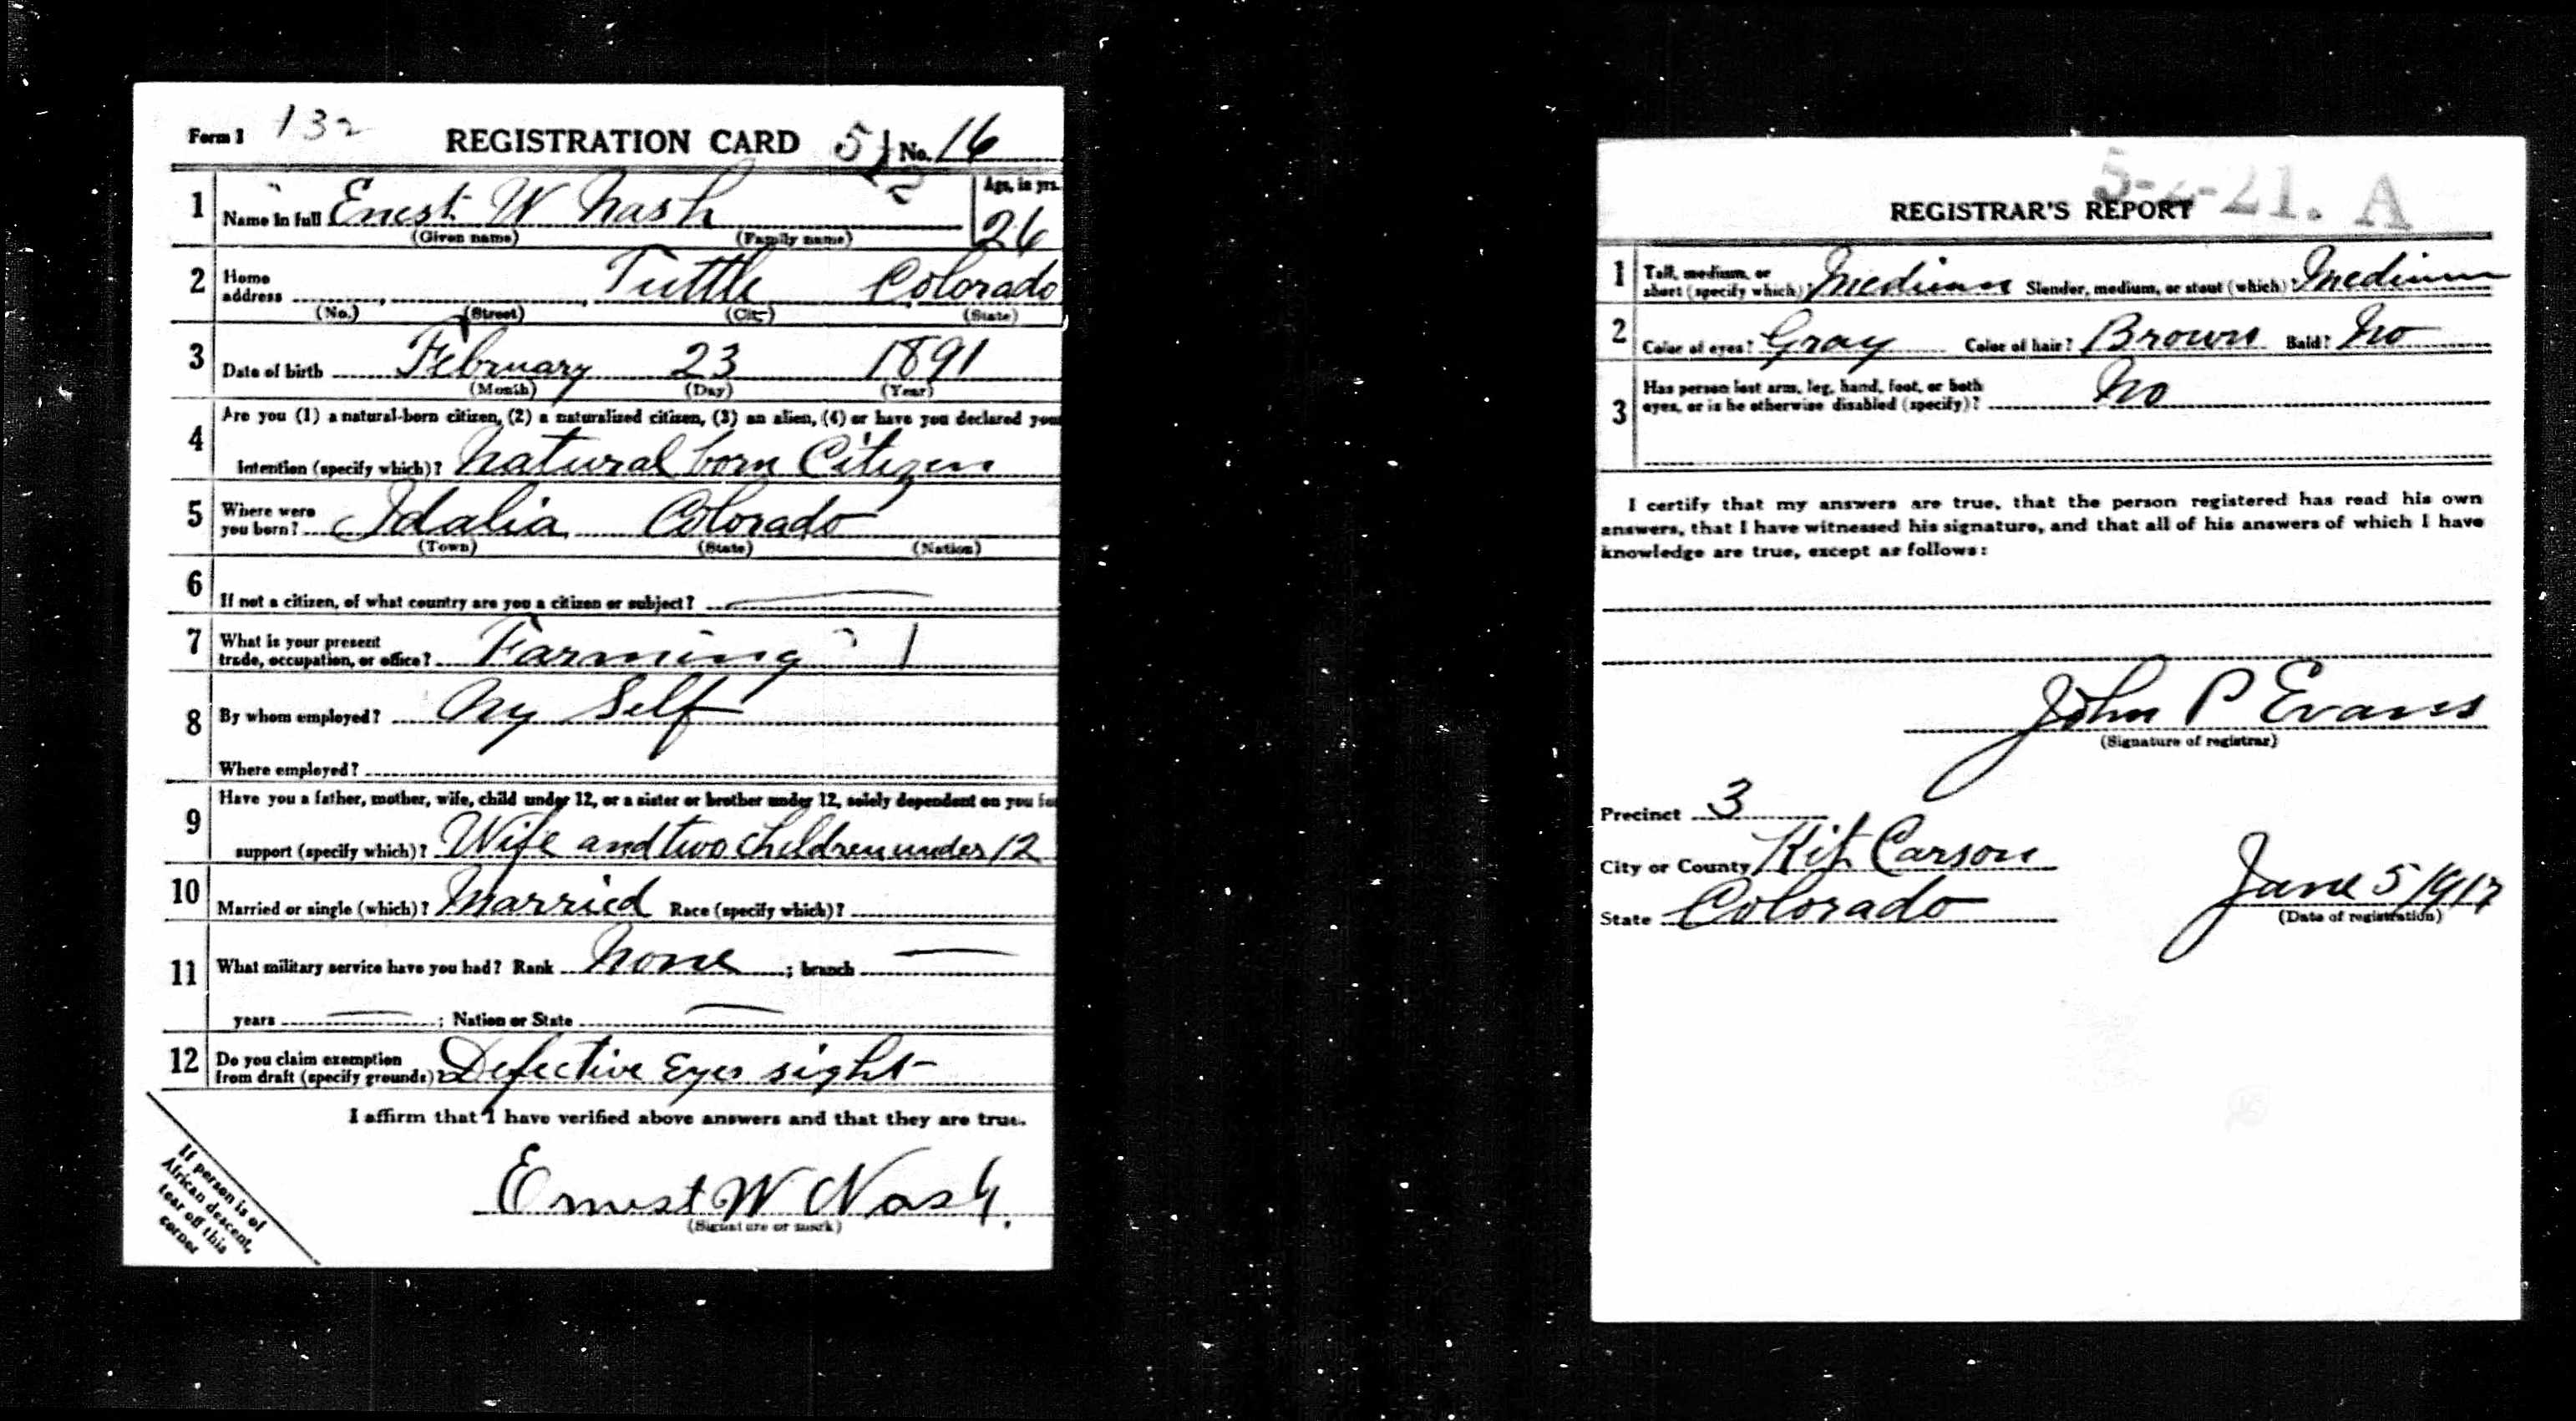 Form 1 132 REGISTRATION CARD No. 16
1 Name in full Enest W Nash 26 Age, in yrs.
(Given name) (Family name)
2 Home address Tuttle Colorado
(No.) (Street) (City) (State)
3 Date of birth February 23 1891
(Month) (Day) (Year)
4 Are you (1) a natural-born citizen, (2) a naturalized citizen, (3) an alien, (4) or have you declared your
intention (specify which)? Natural born Citizen
5 Where were you born? Idalia Colorado
(Town) (State) (Nation)
6 If not a citizen, of what country are you a citizen or subject?
7 What is your present trade, occupation, or office? Farming
8 By whom employed? My Self
Where employed?
9 Have you a father, mother, wife, child under 12, or a sister or brother under 12, solely dependent on you for
support (specify which)? Wife and two children under 12
10 Married or single (which)? Married Race (specify which)?
11 What military service have you had? Rank None ; branch
years ; Nation or State
12 Do you claim exemption from draft (specify grounds)? Defective Eyes sight
I affirm that I have verified above answers and that they are true.
Ernest W Nash.
(Signature or mark)
If person is of
African descent,
tear off this
corner
5-2-21. A
REGISTRAR'S REPORT
1 Tall, medium, or short (specify which)? Medium Slender, medium, or stout (which)? Medium
2 Color of eyes? Gray Color of hair? Brown Bald? No
3 Has person lost arm, leg, hand, foot, or both
eyes, or is he otherwise disabled (specify)? No
I certify that my answers are true, that the person registered has read his own
answers, that I have witnessed his signature, and that all of his answers of which I have
knowledge are true, except as follows:
John P Evans
(Signature of registrar)
Precinct 3
City or County Kit Carson
State Colorado June 5 1917
(Date of registration)